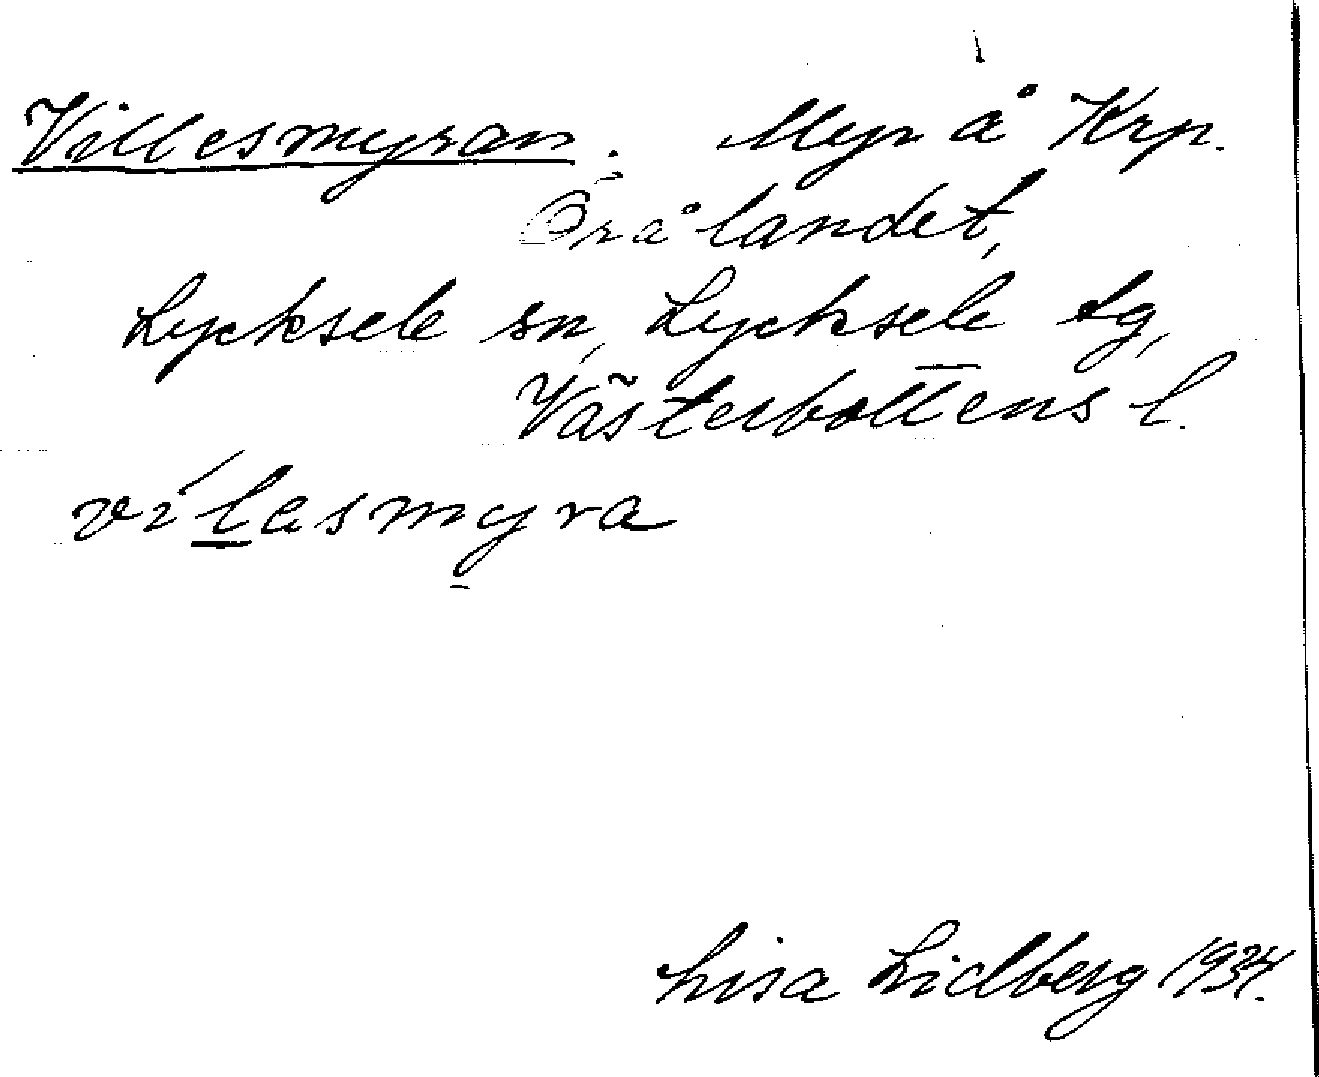 Villesmyran. Myr å Krp.
Örålandet,
Lycksele sn, Lycksele tg,
Västerbottens l.
vílesmyra
Lisa Lidberg 1934.